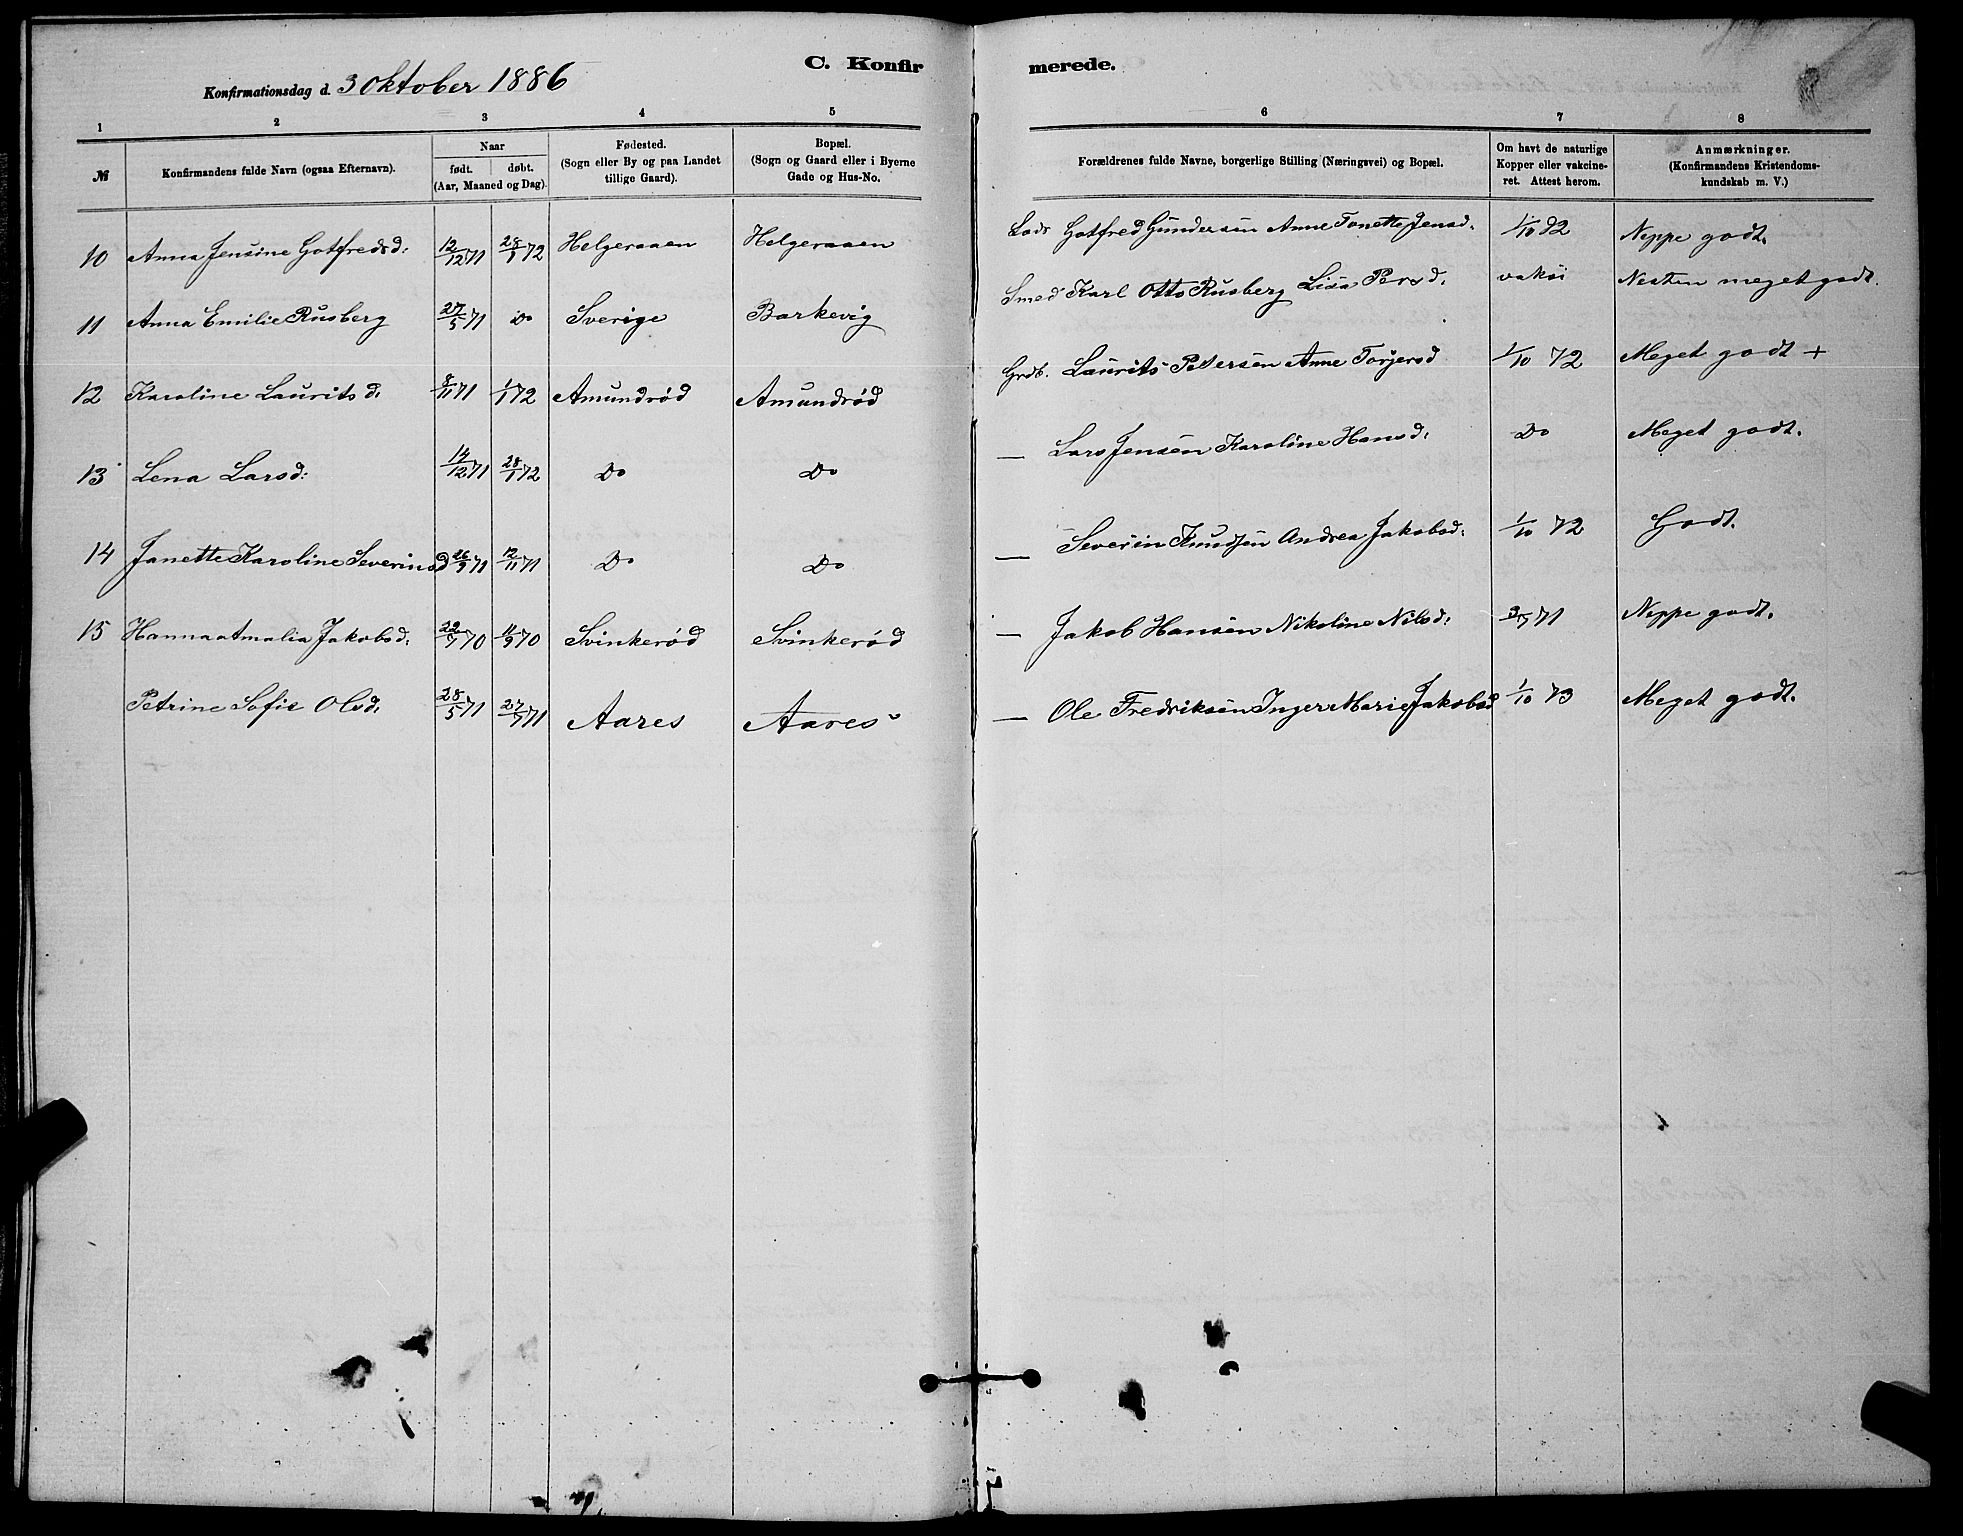 C. Konfirmerede.
Konfirmationsdag d. 3 Oktober 1886
1 2 3 4 5 6 7 8
№ Konfirmandens fulde Navn (ogsaa Efternavn). Naar født. døbt. (Aar, Maaned og Dag). Fødested. (Sogn eller By og paa Landet tillige Gaard). Bopæl. (Sogn og Gaard eller i Byerne Gade og Hus-No. Forældrenes fulde Navne, borgerlige Stilling (Næringsvei) og Bopæl. Om havt de naturlige Kopper eller vakcineret. Attest herom. Anmærkninger. (Konfirmandens Kristendomskundskab m. V.)
10 Anna Jensine Gotfredsd: 12/12 71 28/1 72 Helgeraaen Helgeraaen Lods Gotfred Gundersen Anne Tonette Jensd. Neppe godt.
11 Anna Emilie Rusberg 27/5 71 Do Sverige Barkevig Smed Karl Otto Rusberg Lisa Persd. Nesten meget godt.
12 Karoline Lauritsd. 8/11 71 1/1 72 Amundrød Amundrød Grdb. Laurits Petersen Anne Torjersd 1/10 72 Meget godt +
13 Lena Larsd: 14/12 71 28/1 72 Do Do — Lars Jensen Karoline Hansd. Do Meget godt.
14 Janette Karoline Severinsd 26/9 71 12/11 71 Do Do — Severin Knudsen Andrea Jakobsd. 1/10 72 Godt.
15 Hanna Amalia Jakobsd. 22/7 70 11/9 70 Svinkerød Svinkerød — Jakob Hansen Nikoline Nilsd. Neppe godt.
Petrine Sofie Olsd. 28/5 71 27/7 71 Aares Aares — Ole Fredriksen Inger Marie Jakobsd 1/10 73 Meget godt.